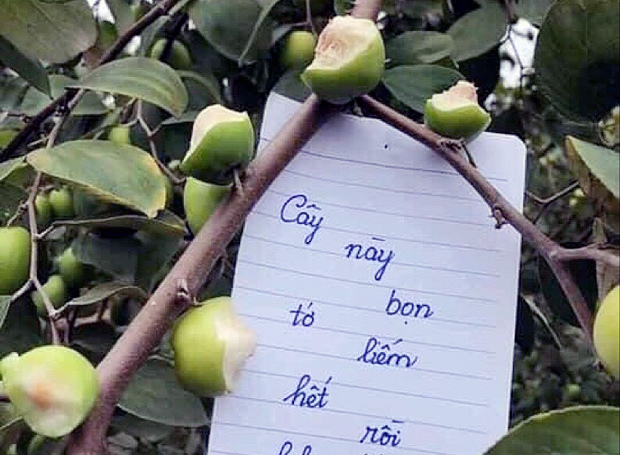 Cây này
tớ bọn
liếm
hết rồi